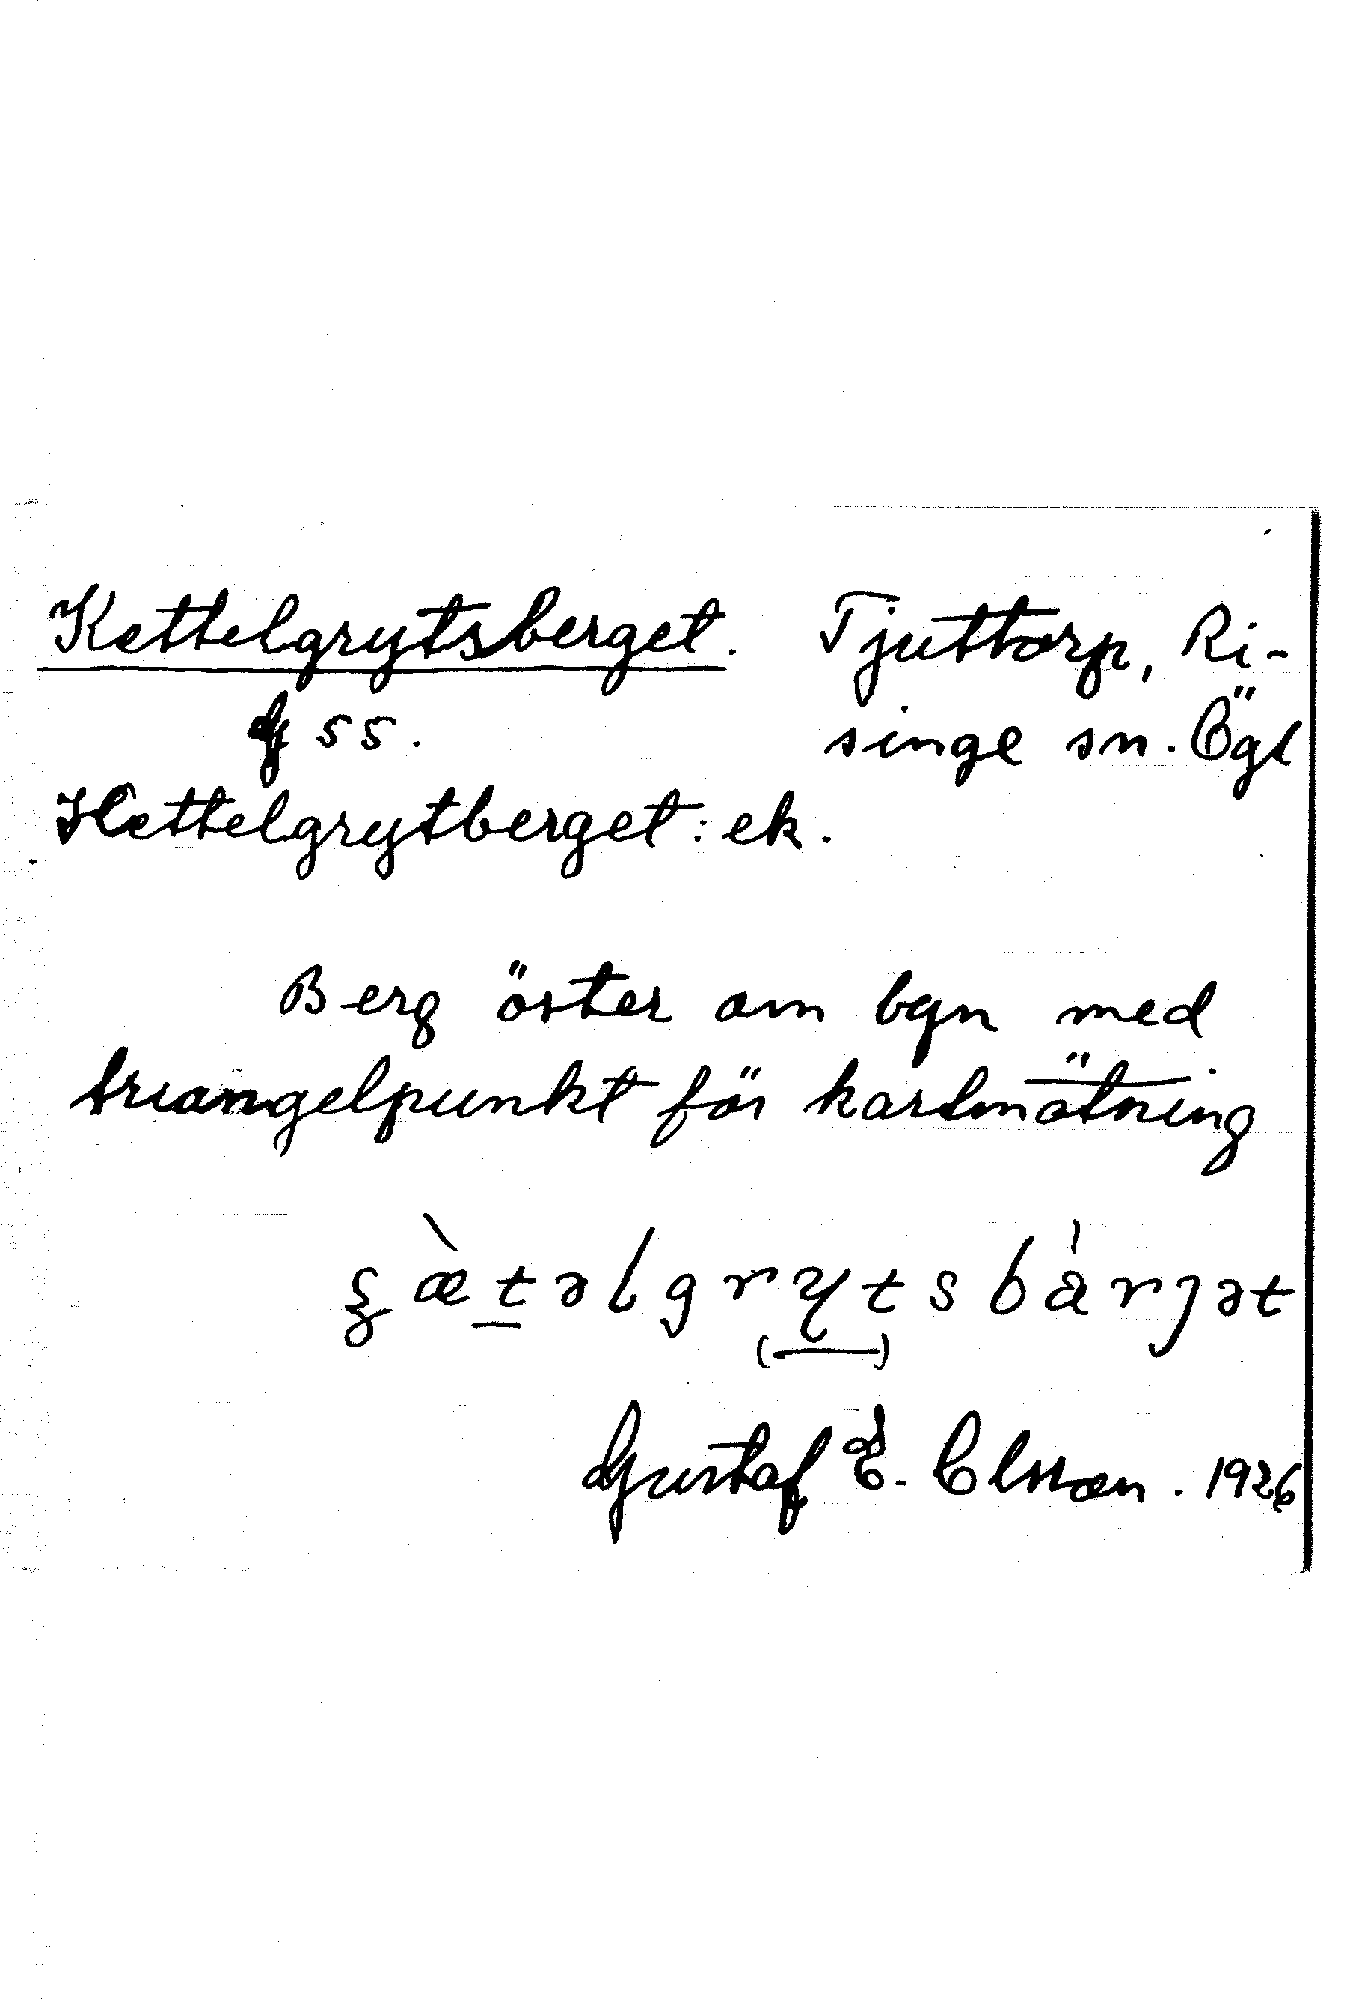 Kettelgrytsberget. Tjuttorp, Ri-
55. singe sn. Ögl
Kettelgrytberget: ek.
Berg öster om bgn med
triangelpunkt för kartmätning
Gustaf E. Olsson. 1926